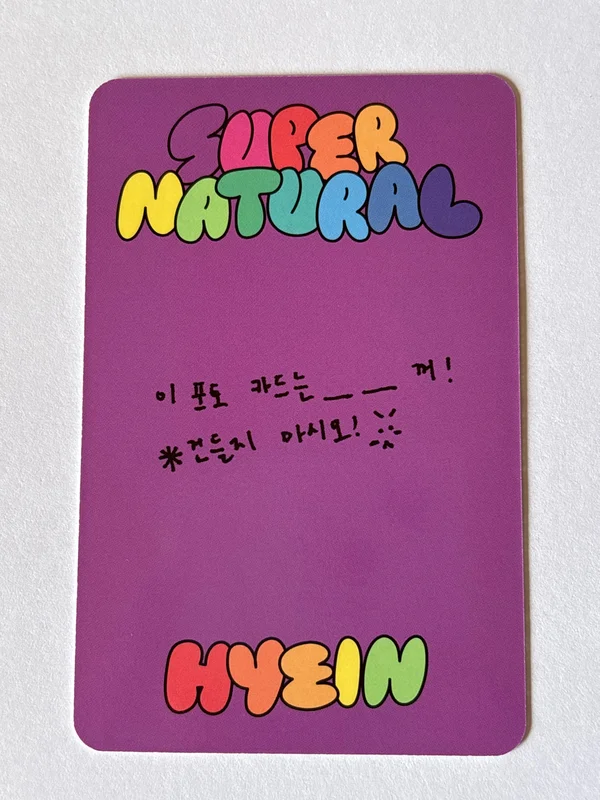 SUPER
NATURAL
이 포토 카드는 _ _ 꺼!
*건들지 마시오!
HYEIN